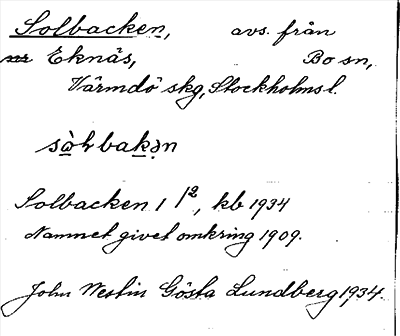 Solbacken, avs. från
Eknäs, Bo sn,
Värmdö skg, Stockholms l.
sòlbakən
Solbacken 1 1², kb 1934
Namnet givet omkring 1909.
John Westin Gösta Lundberg 1934.